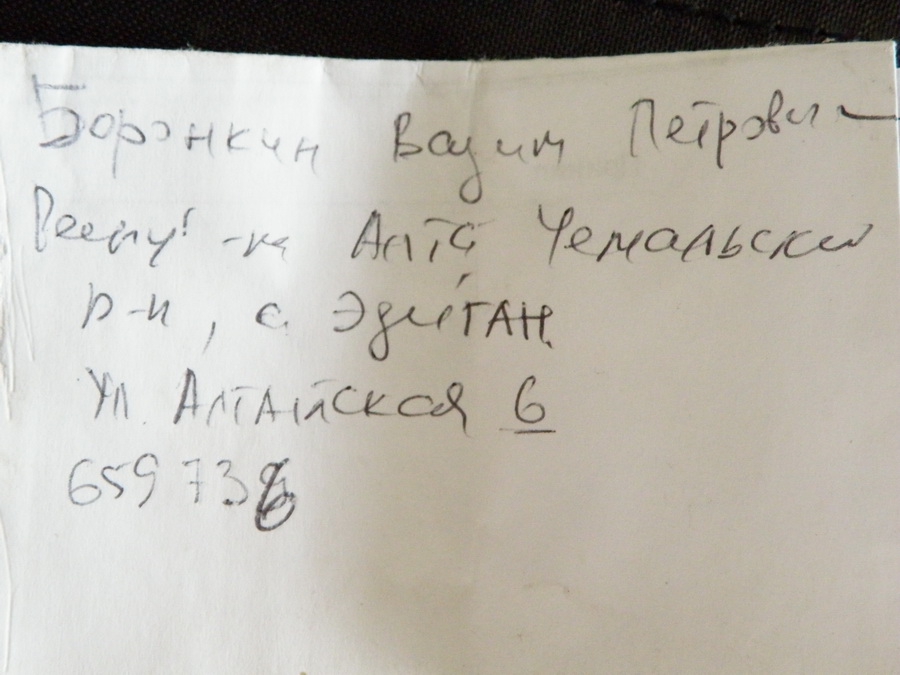 Боронкин Вадим Петрович
Респу -ка Алта Чемальский
р-н, с. Эдиган
Ул. Алтайская 6
659 736